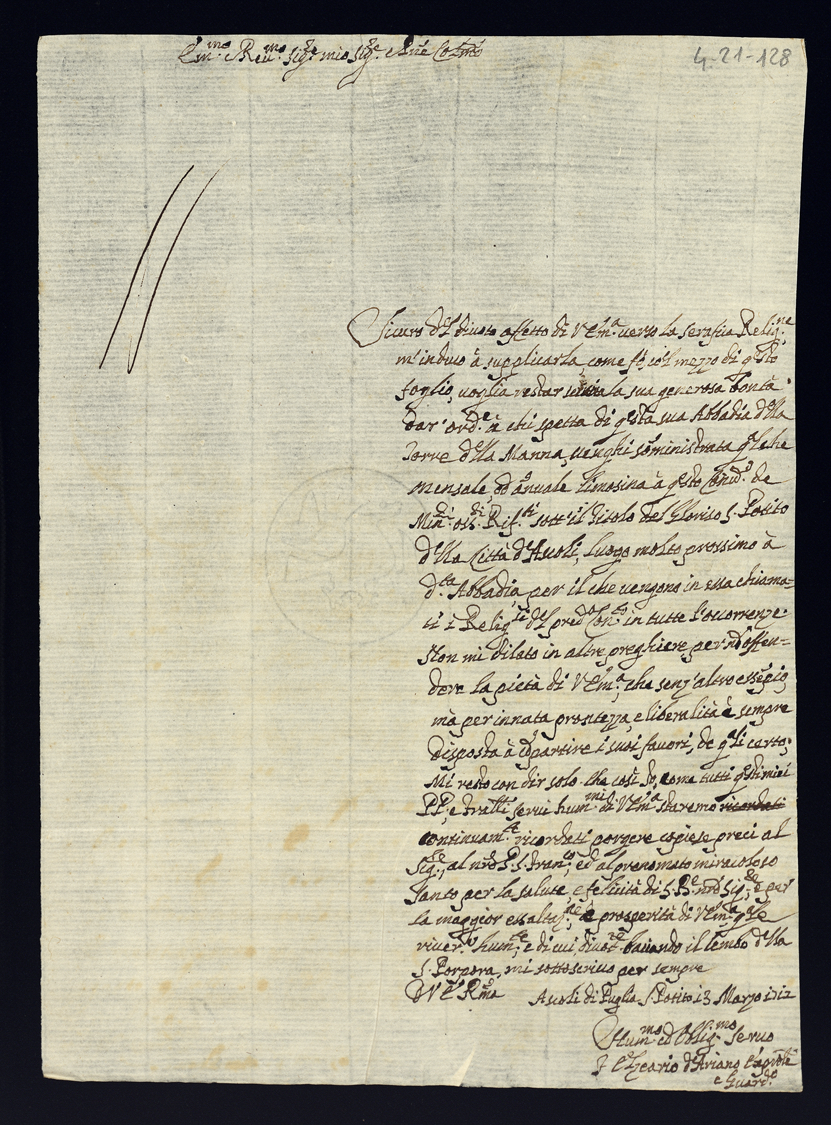 Em.mo e Reu.mo Sig.re mio Sig.re e Pne Col.mo
4-21-128
Sicuro d'l diuoto affetto di V Em.a verso la serafica Relig.ne
m'induco à supplicarla, come fò, co'l mezzo di q'sto
foglio, voglia restar seruita la sua generosa bontà
dar' ord.e à chi spetta di q'sta sua Abbadia d'lla
Torre d'lla Manna, venghi soministrata q'lche
mensale, od anuale limosina à q'sto Conu.to de
Min.ri Oss.ti Rif.ti sott' il titolo del Glorioso S. Potito
d'lla Città d'Ascoli, luogo molto prossimo à
d.ta Abbadia, per il che vengono in essa chiama=
ti i Relig.si d'l pred.o Con.to in tutte l'occorrenze.
Non mi dilato in altre preghiere per nō offen=
dere la pietà di V Em.a, che senz'altro essēpio,
mà per innata prontezza, e liberalità è sempre
disposta à cōpartire i suoi fauori, de q'li certo;
Mi resto con dir solo che così Io, come tutti q'sti miei
PP, e fratti serui hum.mi di V Em.a staremo ricordati
continuam.te ricordati porgere copiose preci al
Sig.re, al nro P. S. Fran.co, ed al prenomato miracoloso
Santo per la salute, e felicità di S. B.e nro Sig.re, e per
la maggior essaltaz.ne e prosperità di V Em.a q'le
river.o hum.te, e di cui, diuot.te baciando il lembo d'lla
S. Porpora, mi sottoscriuo per sempre
D V E Rma Ascoli di Puglia S. Potito 13 Marzo 1712
Hum.mo ed Obblig.mo Seruo
F. Elzeario d'Ariano
e Guard.o